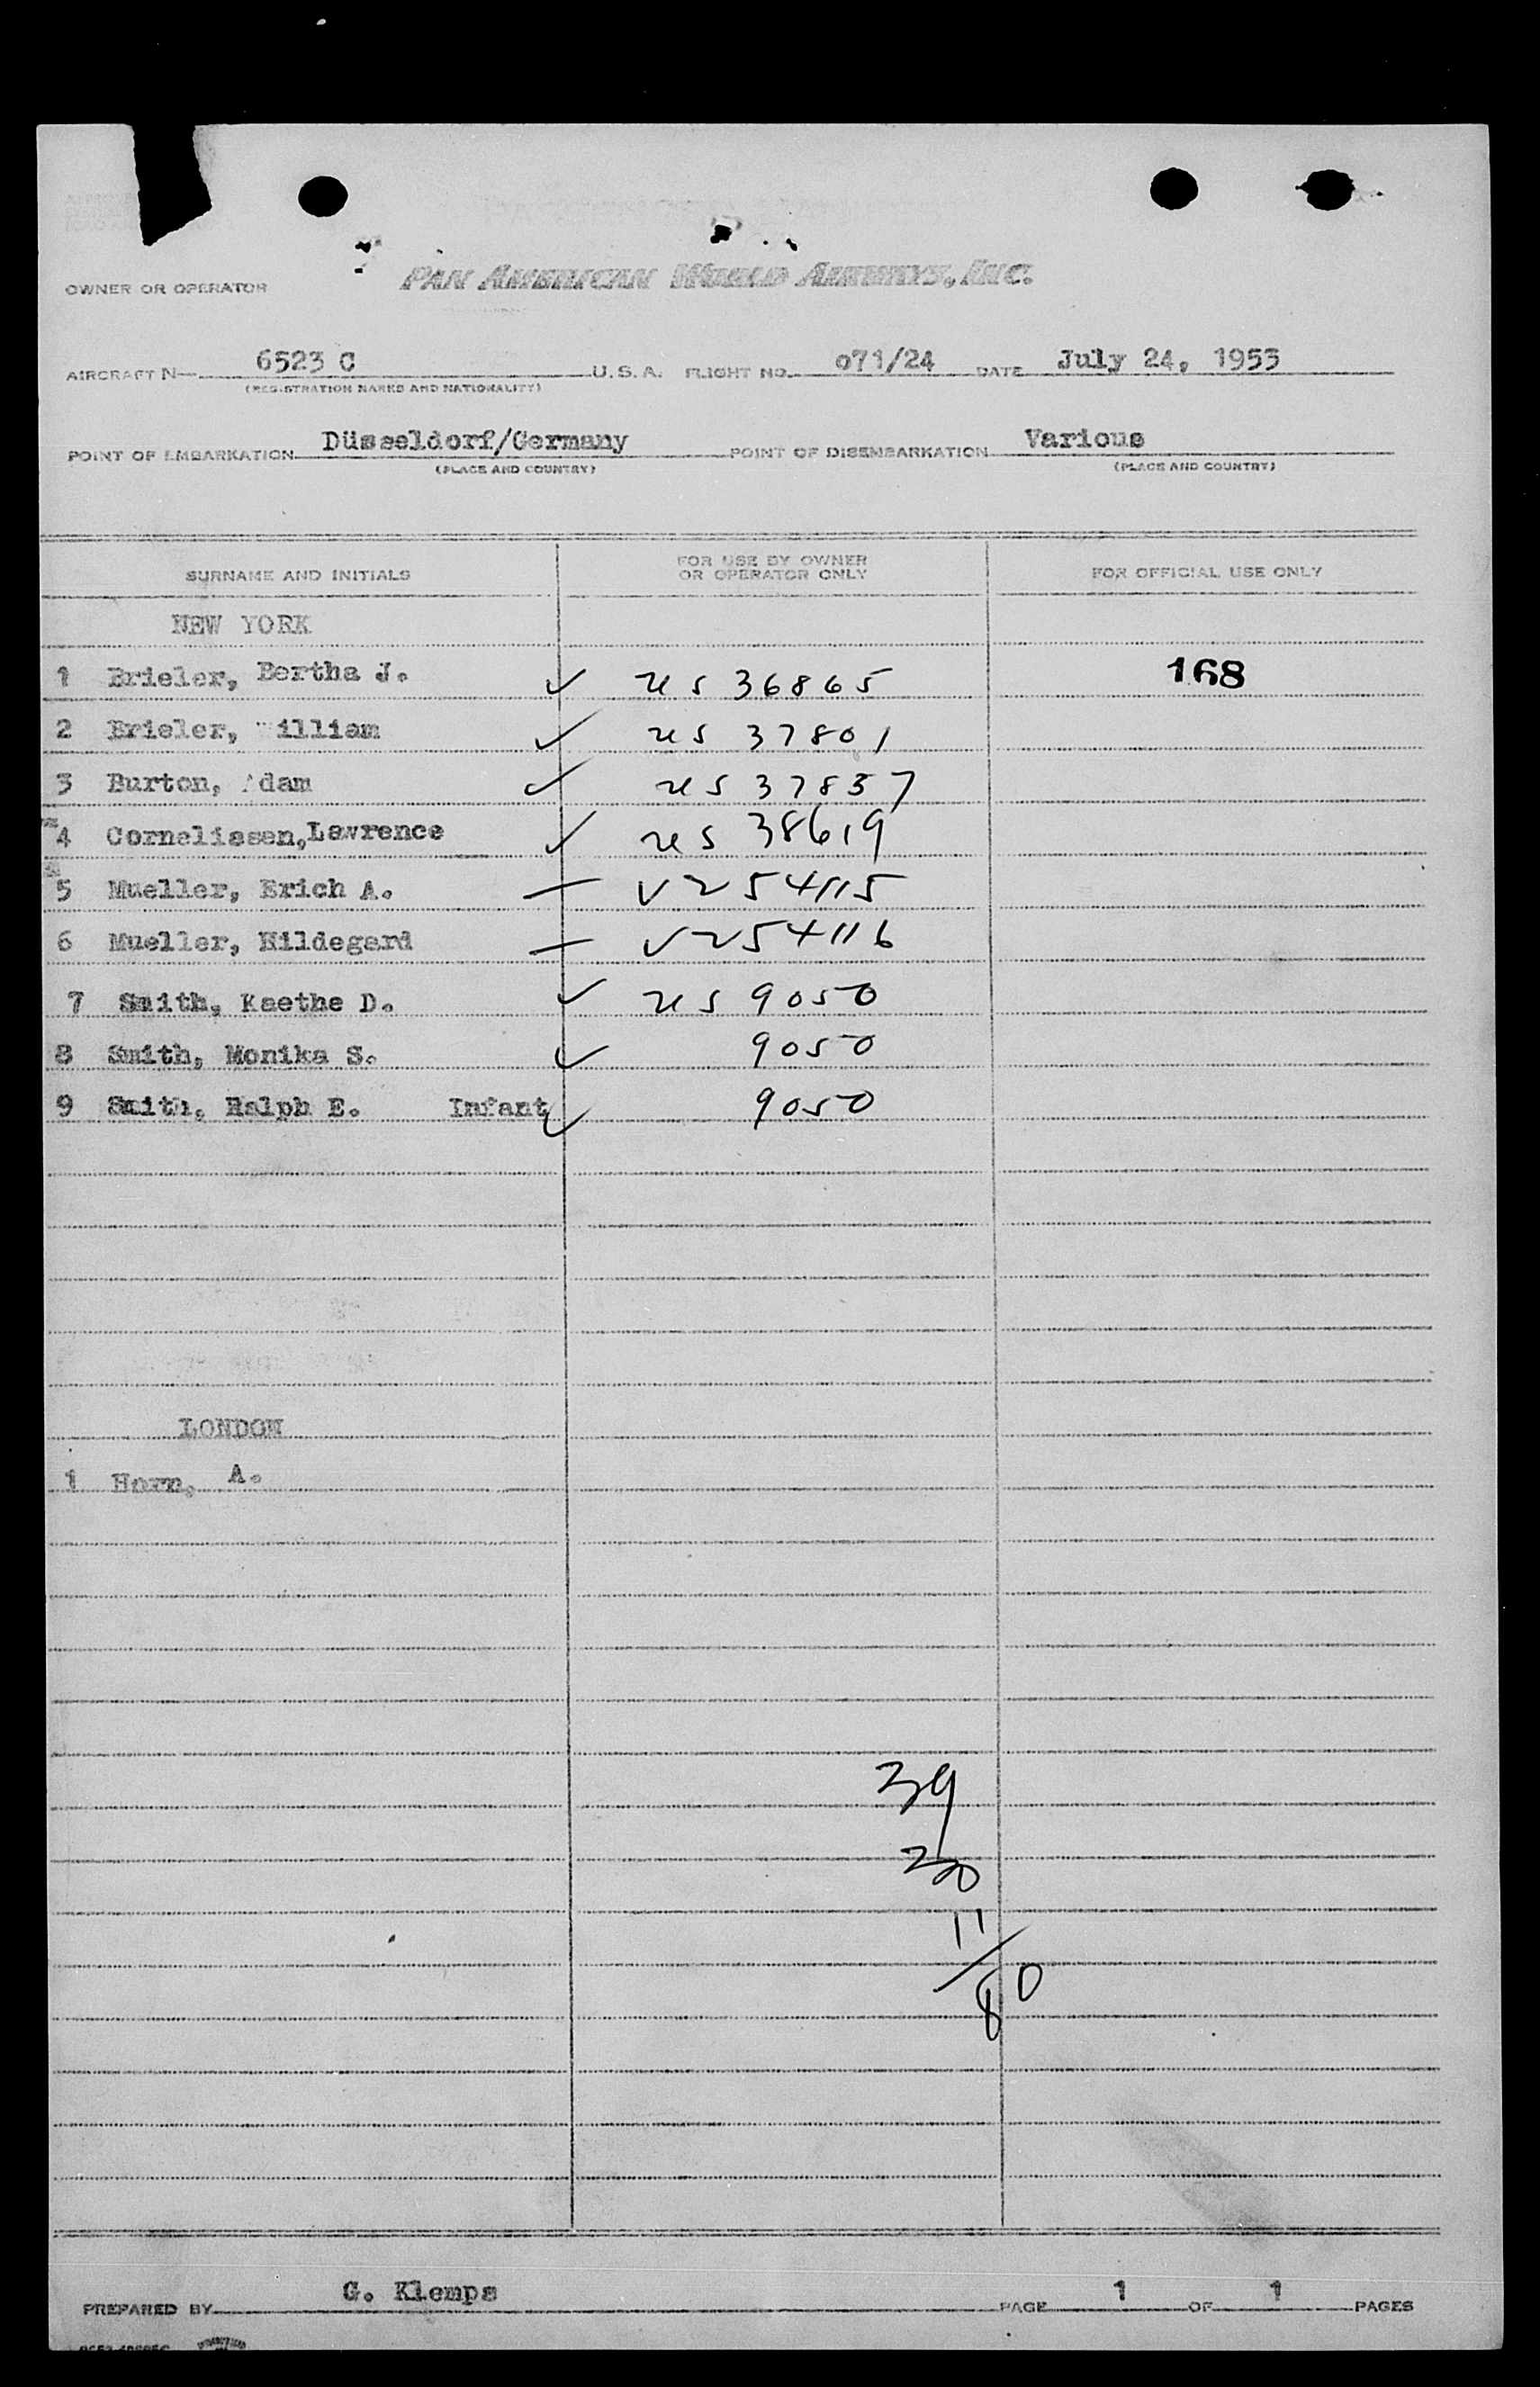 OWNER OR OPERATOR PAN AMERICAN WORLD AIRWAYS, INC.
AIRCRAFT N— 6523 C U.S.A. FLIGHT NO. 071/24 DATE July 24, 1953
(REGISTRATION MARKS AND NATIONALITY)
POINT OF EMBARKATION Düsseldorf/Germany POINT OF DISEMBARKATION Various
(PLACE AND COUNTRY) (PLACE AND COUNTRY)
SURNAME AND INITIALS FOR USE BY OWNER OR OPERATOR ONLY FOR OFFICIAL USE ONLY
NEW YORK
1 Brieler, Bertha J. ✓ US 36865 168
2 Brieler, William ✓ US 37801
3 Burton, Adam ✓ US 37857
4 Cornelissen, Lawrence ✓ US 38619
5 Mueller, Erich A. — V254115
6 Mueller, Hildegard — V254116
7 Smith, Kaethe D. ✓ US 9050
8 Smith, Monika S. ✓ 9050
9 Smith, Ralph E. Infant ✓ 9050
LONDON
1 Horn, A.
39
30
11
80
PREPARED BY G. Klemps PAGE 1 OF 1 PAGES